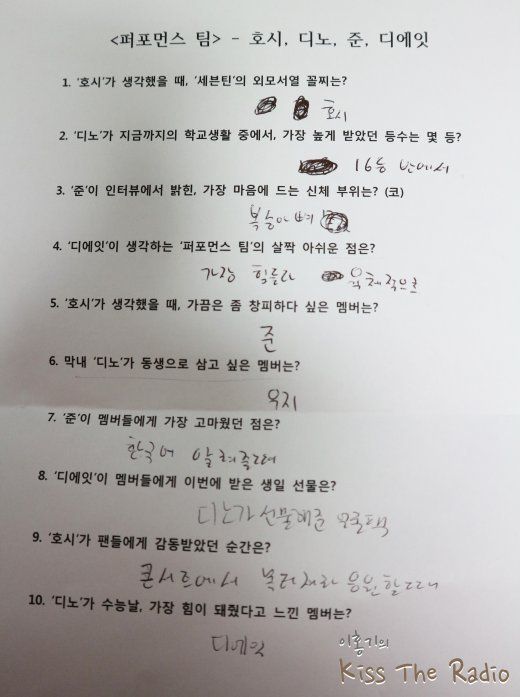 <퍼포먼스 팀> - 호시, 디노, 준, 디에잇
1. '호시'가 생각했을 때, '세븐틴'의 외모서열 꼴찌는?
호시
2. '디노'가 지금까지의 학교생활 중에서, 가장 높게 받았던 등수는 몇 등?
16등 반에서
3. '준'이 인터뷰에서 밝힌, 가장 마음에 드는 신체 부위는? (코)
복숭아뼈
4. '디에잇'이 생각하는 '퍼포먼스 팀'의 살짝 아쉬운 점은?
가장 힘들다 육체적으로
5. '호시'가 생각했을 때, 가끔은 좀 창피하다 싶은 멤버는?
준
6. 막내 '디노'가 동생으로 삼고 싶은 멤버는?
우지
7. '준'이 멤버들에게 가장 고마웠던 점은?
한국어 알려줄때
8. '디에잇'이 멤버들에게 이번에 받은 생일 선물은?
디노가 선물해준
9. '호시'가 팬들에게 감동받았던 순간은?
콘서트에서 응원할때
10. '디노'가 수능날, 가장 힘이 돼줬다고 느낀 멤버는?
디에잇
이홍기의
Kiss The Radio